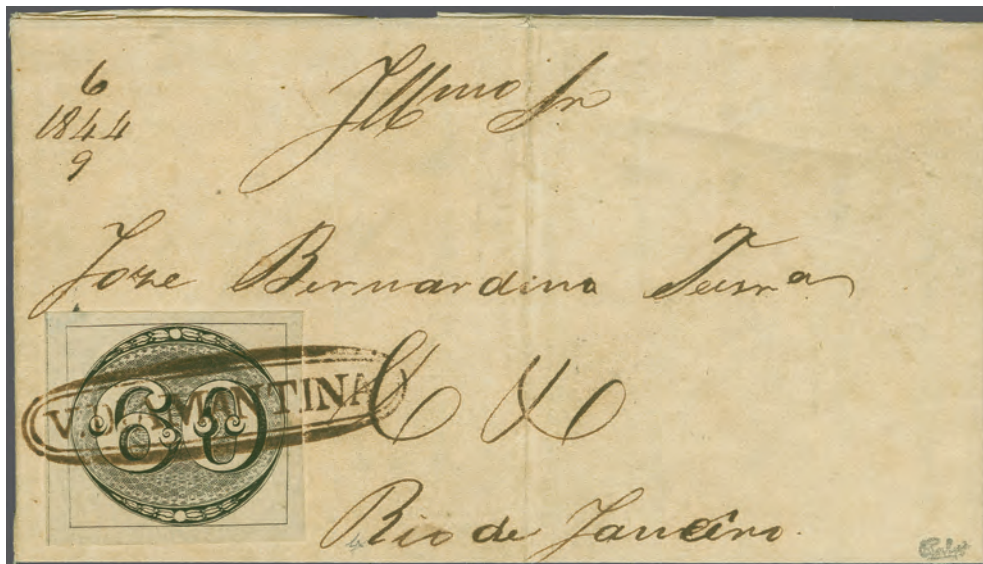 6
1844
9
Illmo Sr
Joze Bernardino
60
V. DIAMANTINA
Rio de Janeiro.